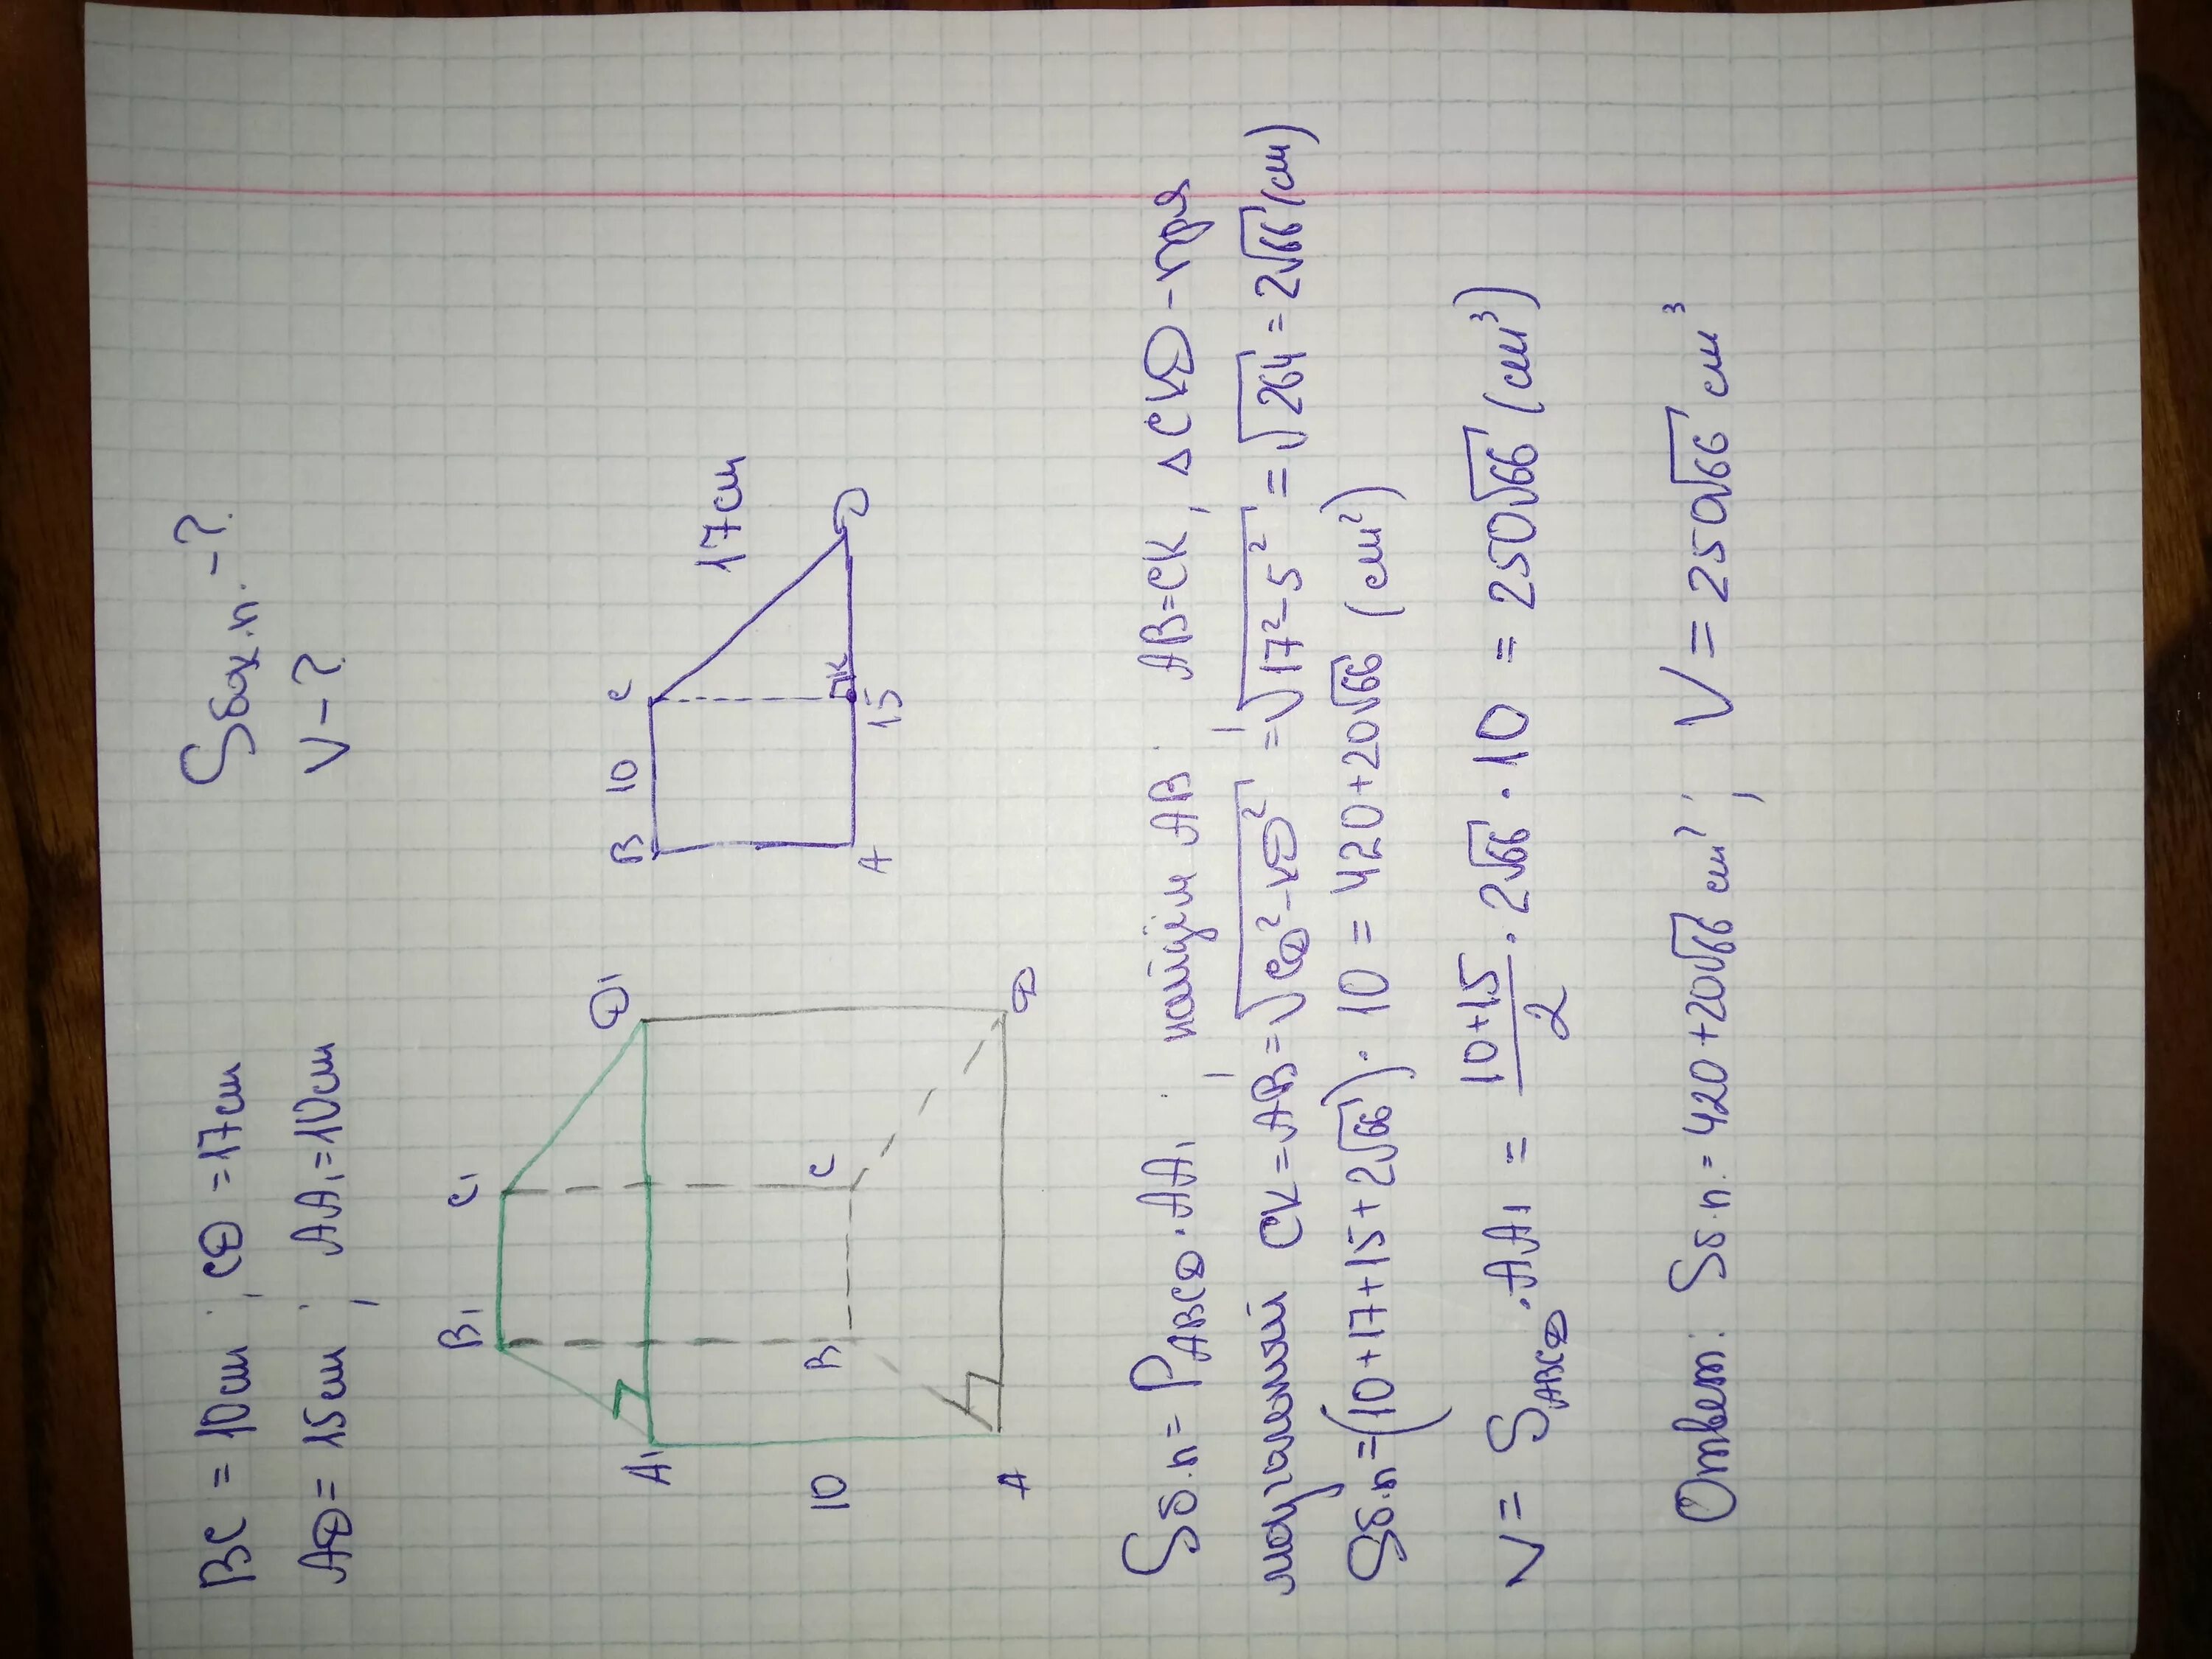 BC = 10см ; CD = 17см Sбок.п. - ?
AD = 15см ; AA₁ = 10см V - ?
B₁ C₁
A₁ D₁
10
B C
A D
B 10 C
17см
K
A 15 D
Sб.п = P_ABCD · AA₁ , найдём AB : AB = CK, △CKD - пря
моугольный CK = AB = √(CD² - KD²) = √(17² - 5²) = √264 = 2√66 (см)
Sб.п = (10 + 17 + 15 + 2√66) · 10 = 420 + 20√66 (см²)
V = S_ABCD · AA₁ = (10+15)/2 · 2√66 · 10 = 250√66 (см³)
Ответ: Sб.п. = 420 + 20√66 см² ; V = 250√66 см³